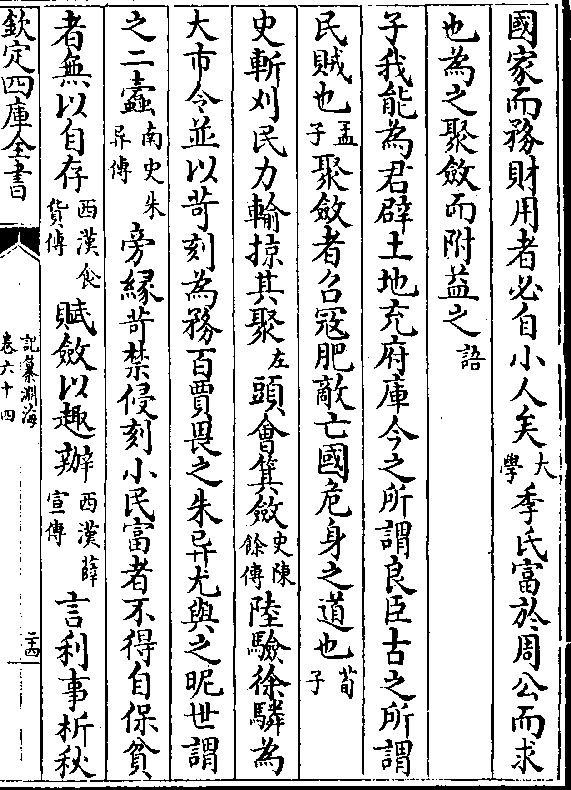 國家而務財用者必自小人矣大學季氏富於周公而求
也為之聚斂而附益之語
子我能為君辟土地充府庫今之所謂良臣古之所謂
民賊也孟子聚斂者召寇肥敵亡國危身之道也荀子
史斬刈民力輸掠其聚左頭會箕斂史陳餘傳陸驗徐驎為
大市令並以苛刻為務百賈畏之朱异尤與之昵世謂
之二蠹南史朱异傳旁緣苛禁侵刻小民富者不得自保貧
者無以自存西漢食貨傳賦斂以趣辦西漢薛宣傳言利事析秋
欽定四庫全書
記纂淵海
卷六十四
二十四